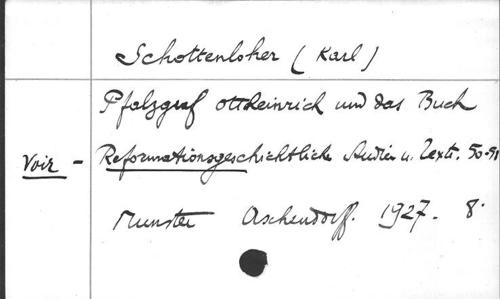 Schottenloher (Karl)
Pfalzgraf ottheinrich und das Buch
Voir - Reformationsgeschichtliche Studien u. Texte. 50-51
Munster Aschendorff. 1927. 8°